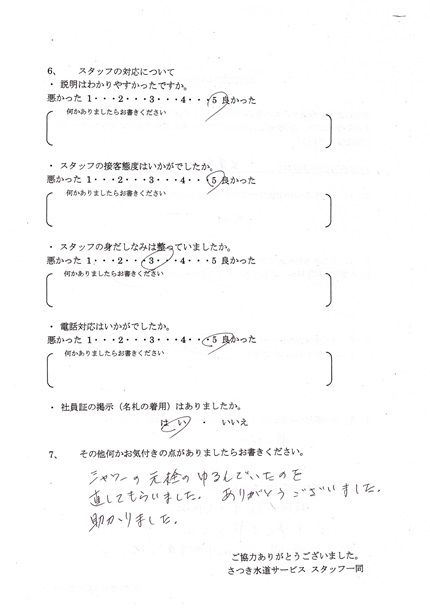 6、 スタッフの対応について
・ 説明はわかりやすかったですか。
悪かった 1・・・2・・・3・・・4・・・5 良かった
何かありましたらお書きください
・ スタッフの接客態度はいかがでしたか。
悪かった 1・・・2・・・3・・・4・・・5 良かった
何かありましたらお書きください
・ スタッフの身だしなみは整っていましたか。
悪かった 1・・・2・・・3・・・4・・・5 良かった
何かありましたらお書きください
・ 電話対応はいかがでしたか。
悪かった 1・・・2・・・3・・・4・・・5 良かった
何かありましたらお書きください
・ 社員証の掲示（名札の着用）はありましたか。
はい ・ いいえ
7、 その他何かお気付きの点がありましたらお書きください。
シャワーの元栓のゆるんでいたのを
直してもらいました。 ありがとうございました。
助かりました。
ご協力ありがとうございました。
さつき水道サービス スタッフ一同